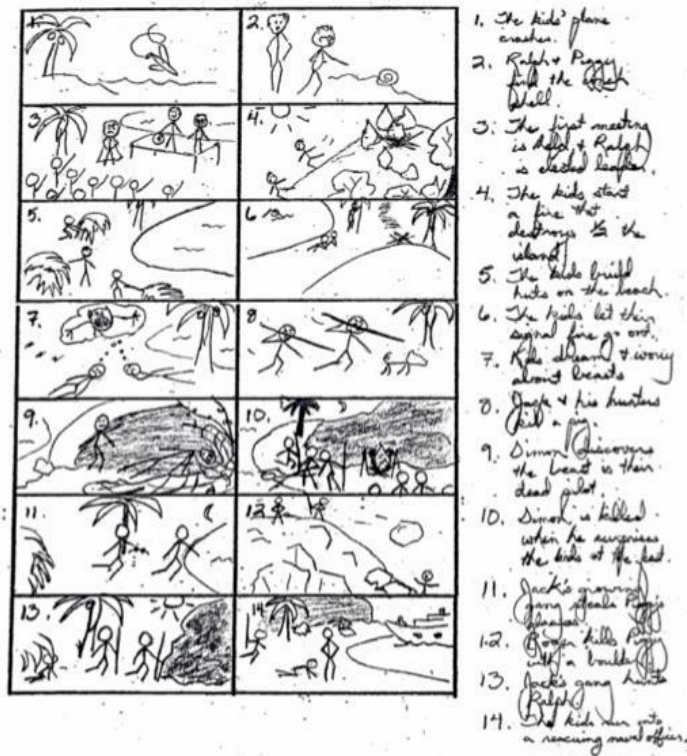 1.
2.
3.
4.
5.
6
7.
8
9.
10.
11.
12.
13.
14.
1. The kids' plane
crashes.
2. Ralph & Piggy
find the conch
shell.
3. The first meeting
is held & Ralph
is elected leader.
4. The kids start
a fire that
destroys ½ the
island.
5. The kids build
huts on the beach.
6. The kids let their
signal fire go out.
7. Kids dream & worry
about beasts
8. Jack & his hunters
kill a pig.
9. Simon discovers
the beast is their
dead pilot.
10. Simon is killed
when he surprises
the kids at the feast.
11. Jack's growing
gang steals Piggy's
glasses.
12. Roger kills Piggy
with a boulder
13. Jack's gang hunts
Ralph.
14. The kids run into
a rescuing naval officer.